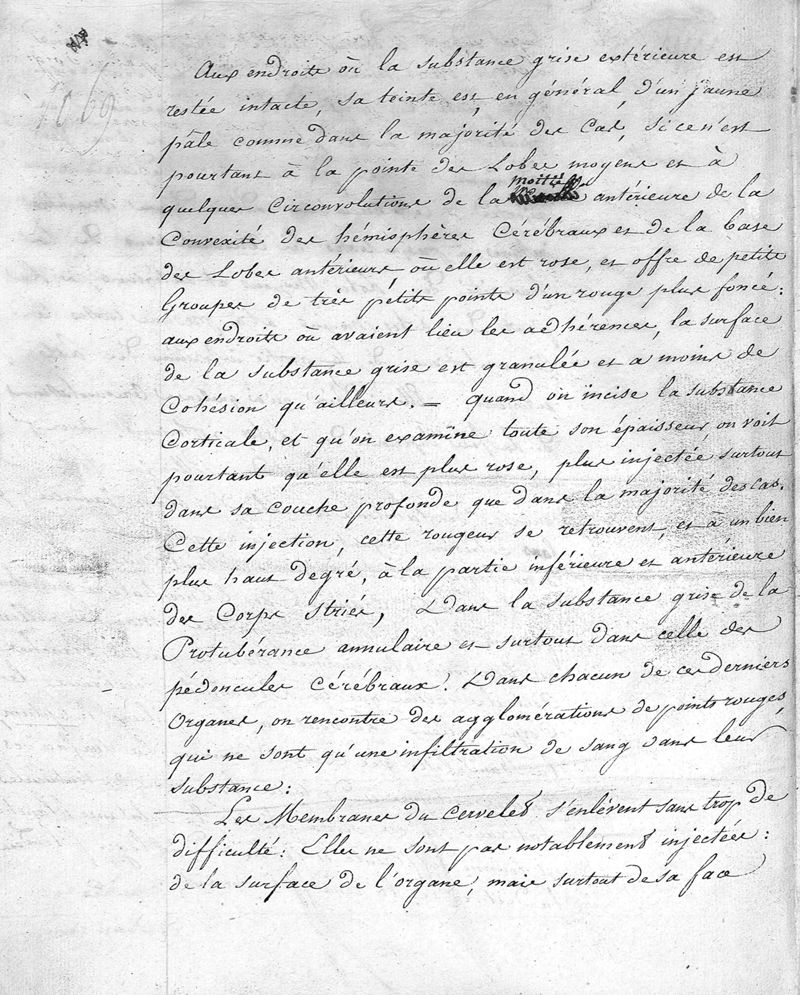 Aux endroits où la substance grise extérieure est
restée intacte, sa teinte est en général d'un jaune
pâle comme dans la majorité des cas, si ce n'est
pourtant à la pointe des Lobes moyens et à
moitié
quelques Circonvolutions de la antérieure de la
Convexité des hémisphères Cérébraux et de la base
des Lobes antérieurs, où elle est rose, et offre de petits
Groupes de très petits points d'un rouge plus foncé:
aux endroits où avaient lieu les adhérences, la surface
de la substance grise est granulée et a moins de
Cohésion qu'ailleurs. = quand on incise la substance
Corticale, et qu'on examine toute son épaisseur, on voit
pourtant qu'elle est plus rose, plus injectée, surtout
dans sa couche profonde que dans la majorité des cas.
Cette injection, cette rougeur se retrouvent, et à un bien
plus haut degré, à la partie inférieure et antérieure
des Corps striés, Dans la substance grise de la
Protubérance annulaire et surtout dans celle des
pédoncules Cérébraux. Dans chacun de ces derniers
Organes, on rencontre des agglomérations de points rouges,
qui ne sont qu'une infiltration de sang dans leur
substance:
Les Membranes du cervelet s'enlèvent sans trop de
difficulté: Elles ne sont pas notablement injectées:
de la surface de l'organe, mais surtout de sa face